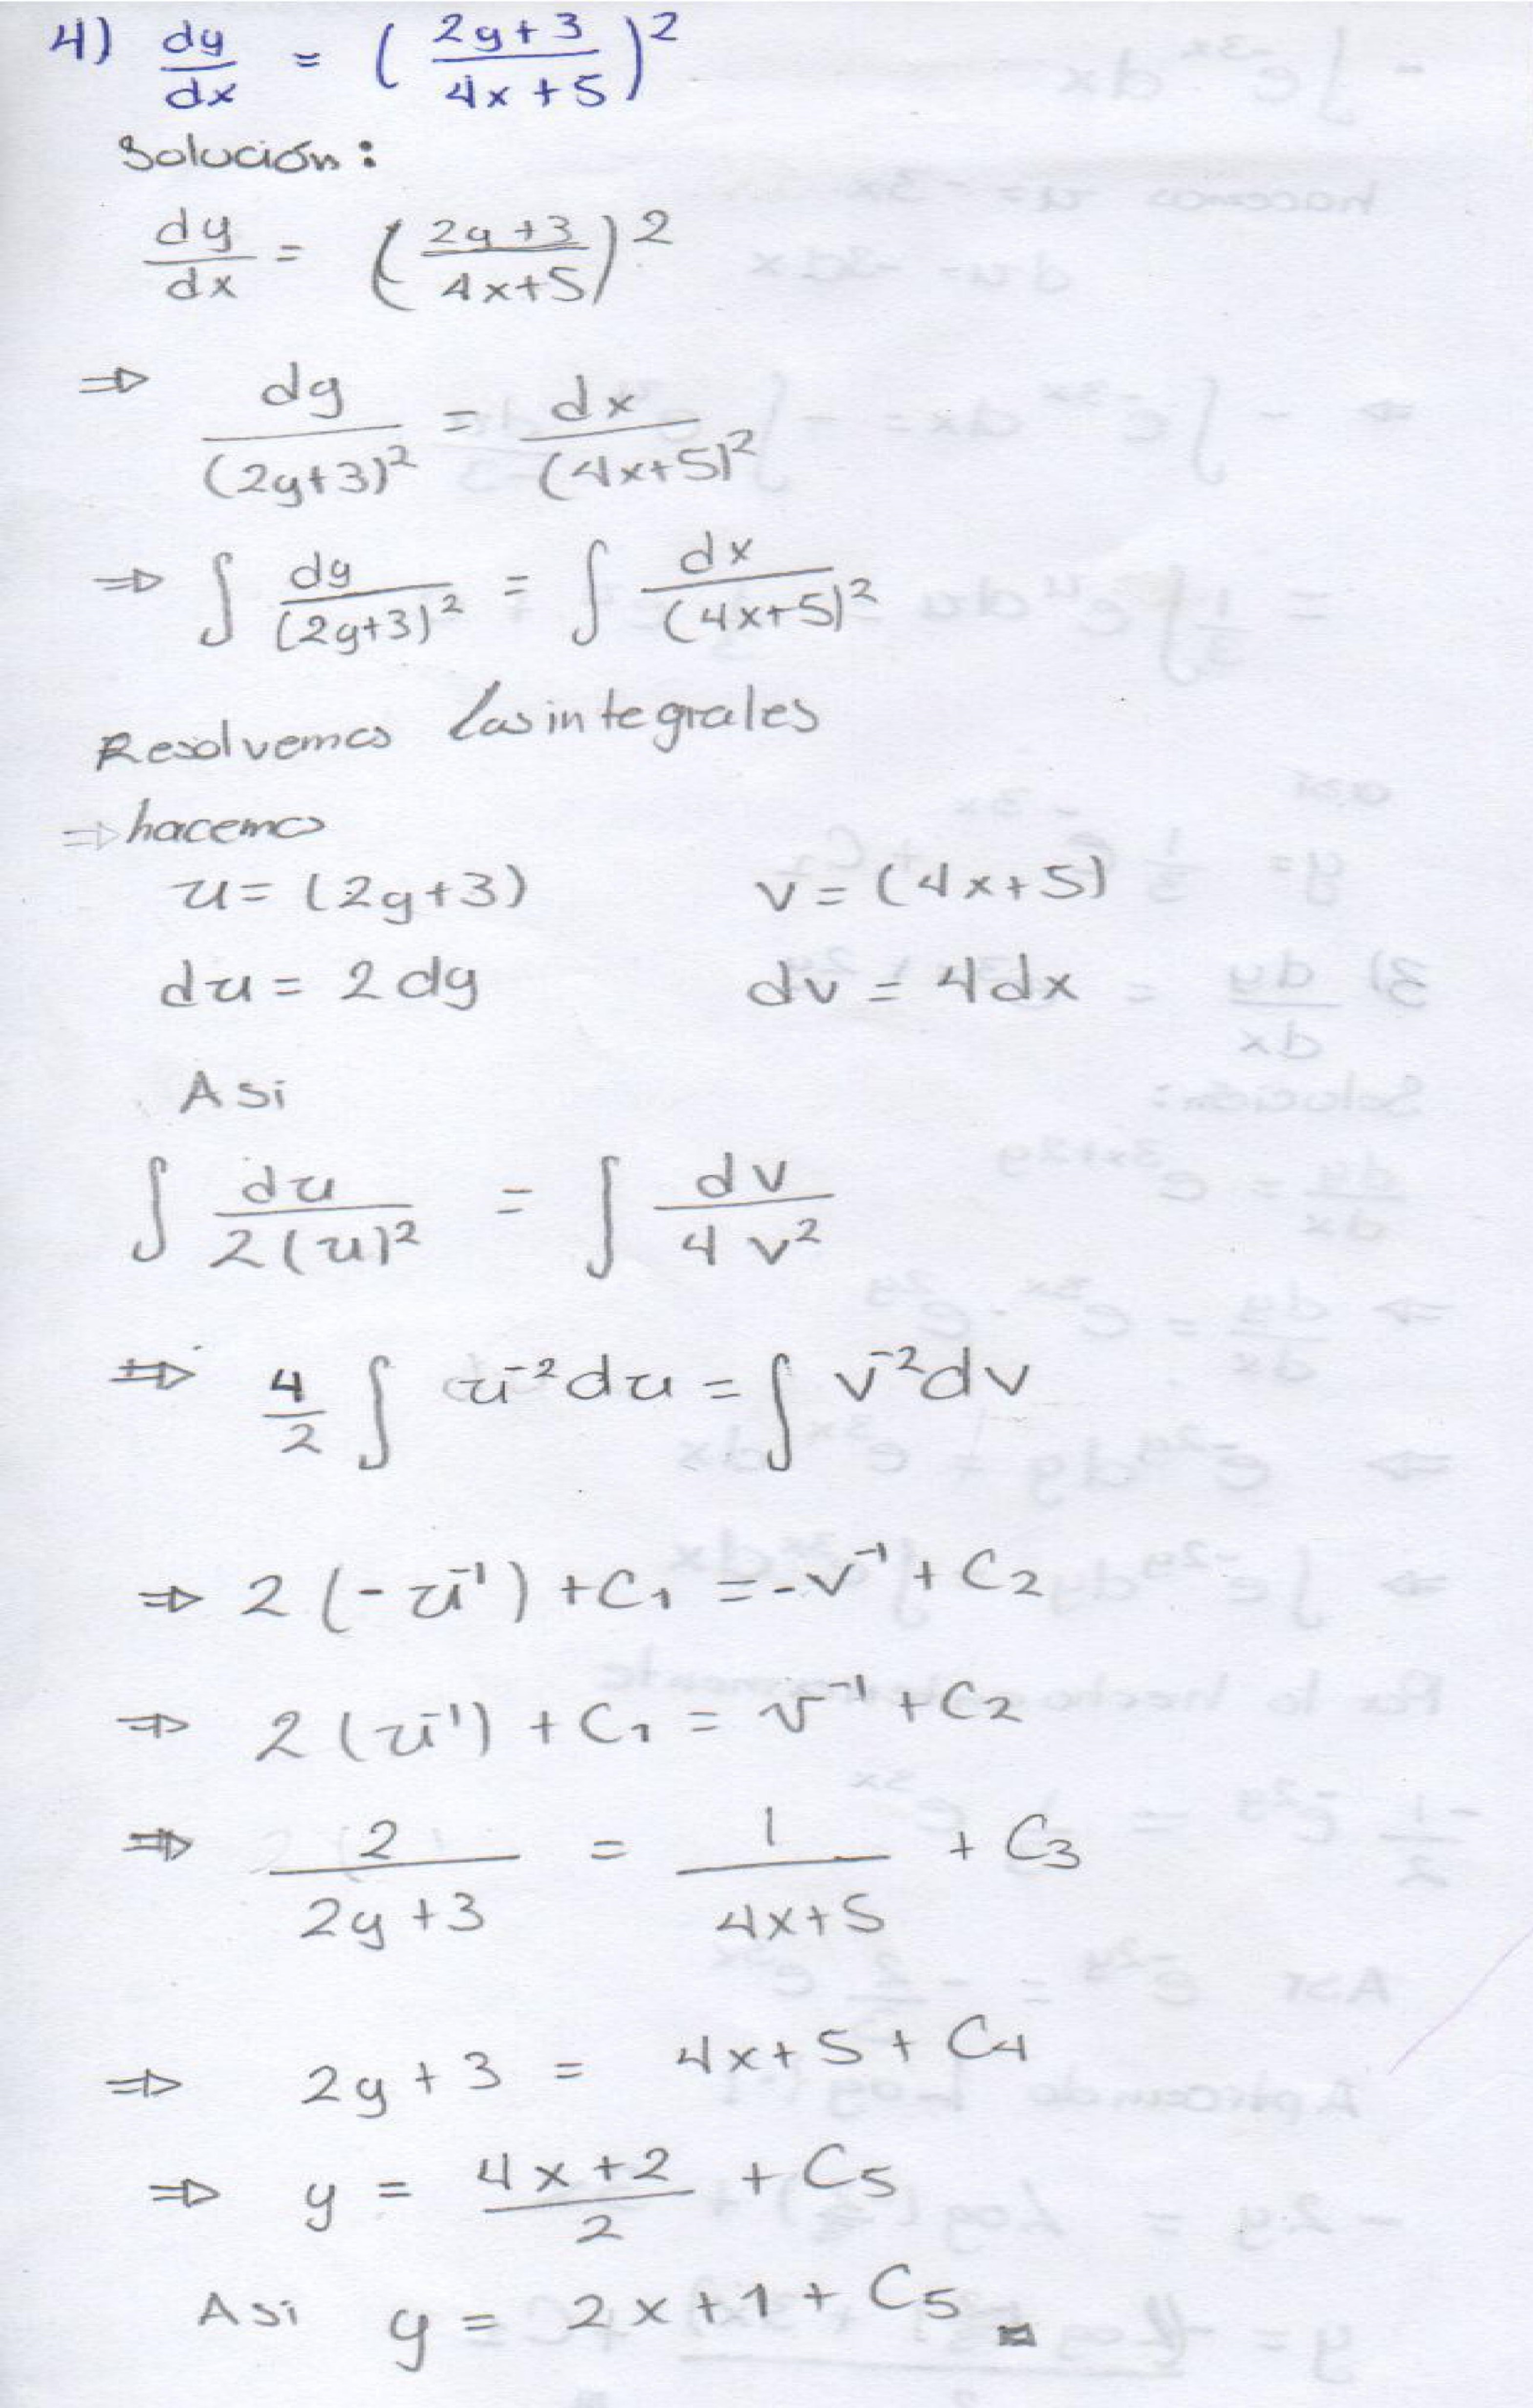 4) dy/dx = ( (2y+3)/(4x+5) )²
Solución:
dy/dx = ( (2y+3)/(4x+5) )²
⇒ dy/(2y+3)² = dx/(4x+5)²
⇒ ∫ dy/(2y+3)² = ∫ dx/(4x+5)²
Resolvemos las integrales
⇒ hacemos
u = (2y+3) v = (4x+5)
du = 2dy dv = 4dx
Asi
∫ du/2(u)² = ∫ dv/4v²
⇒ 4/2 ∫ u⁻²du = ∫ v⁻²dv
⇒ 2(-u⁻¹) + C₁ = -v⁻¹ + C₂
⇒ 2(u⁻¹) + C₁ = v⁻¹ + C₂
⇒ 2/(2y+3) = 1/(4x+5) + C₃
⇒ 2y+3 = 4x+5 + C₄
⇒ y = (4x+2)/2 + C₅
Asi y = 2x+1 + C₅